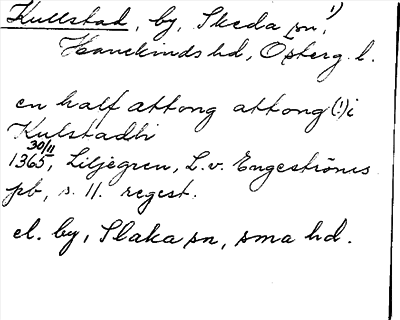 Kullstad, by, Skeda sn, 1)
Hanekinds hd, Österg. l.
en half attong attong (!) i
Kulstadhi
1365 30/11, Liljegren, L. v. Engeströms
pb, s. 11. regest.
el. by, Slaka sn, sma hd.